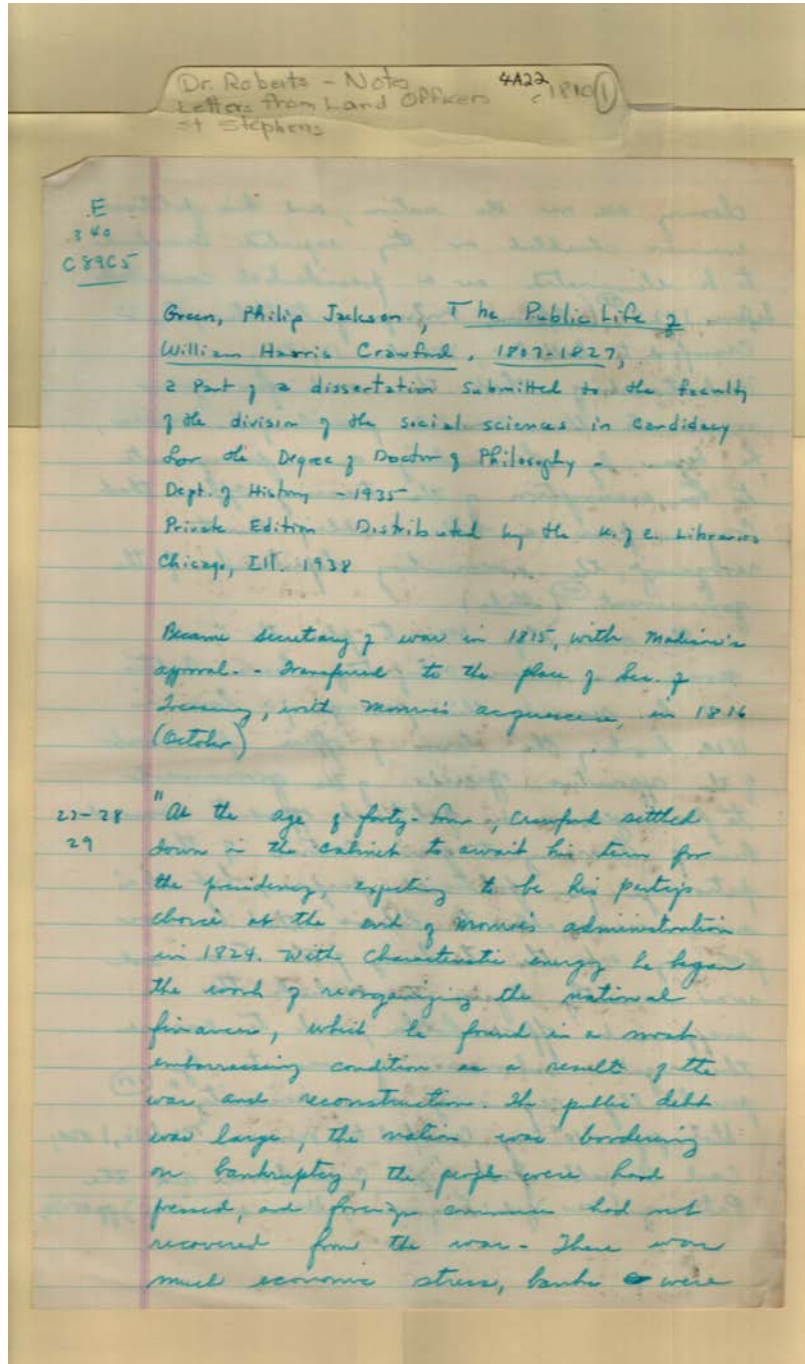 Dr. Roberts - Notes 4A22 c 1810 (1)
Letters from Land Officers
St Stephens
E
.340
C89C5
Green, Philip Jackson, The Public Life of
William Harris Crawford, 1807-1827,
a Part of a dissertation submitted to the faculty
of the division of the social sciences in candidacy
for the Degree of Doctor of Philosophy -
Dept. of History - 1935
Private Edition Distributed by the U. of C. Libraries
Chicago, Ill. 1938
Became Secretary of war in 1815, with Madison's
approval. - Transferred to the place of Sec. of
Treasury, with Monroe's acquiescence, in 1816
(October)
27-28 "At the age of forty-four, Crawford settled
29 down in the cabinet to await his turn for
the presidency, expecting to be his party's
choice at the end of Monroe's administration
in 1824. With characteristic energy he began
the work of reorganizing the national
finances, which he found in a most
embarrassing condition as a result of the
war and reconstruction. The public debt
was large, the nation was bordering
on bankruptcy, the people were hard
pressed, and foreign commerce had not
recovered from the war - There was
much economic stress, banks were